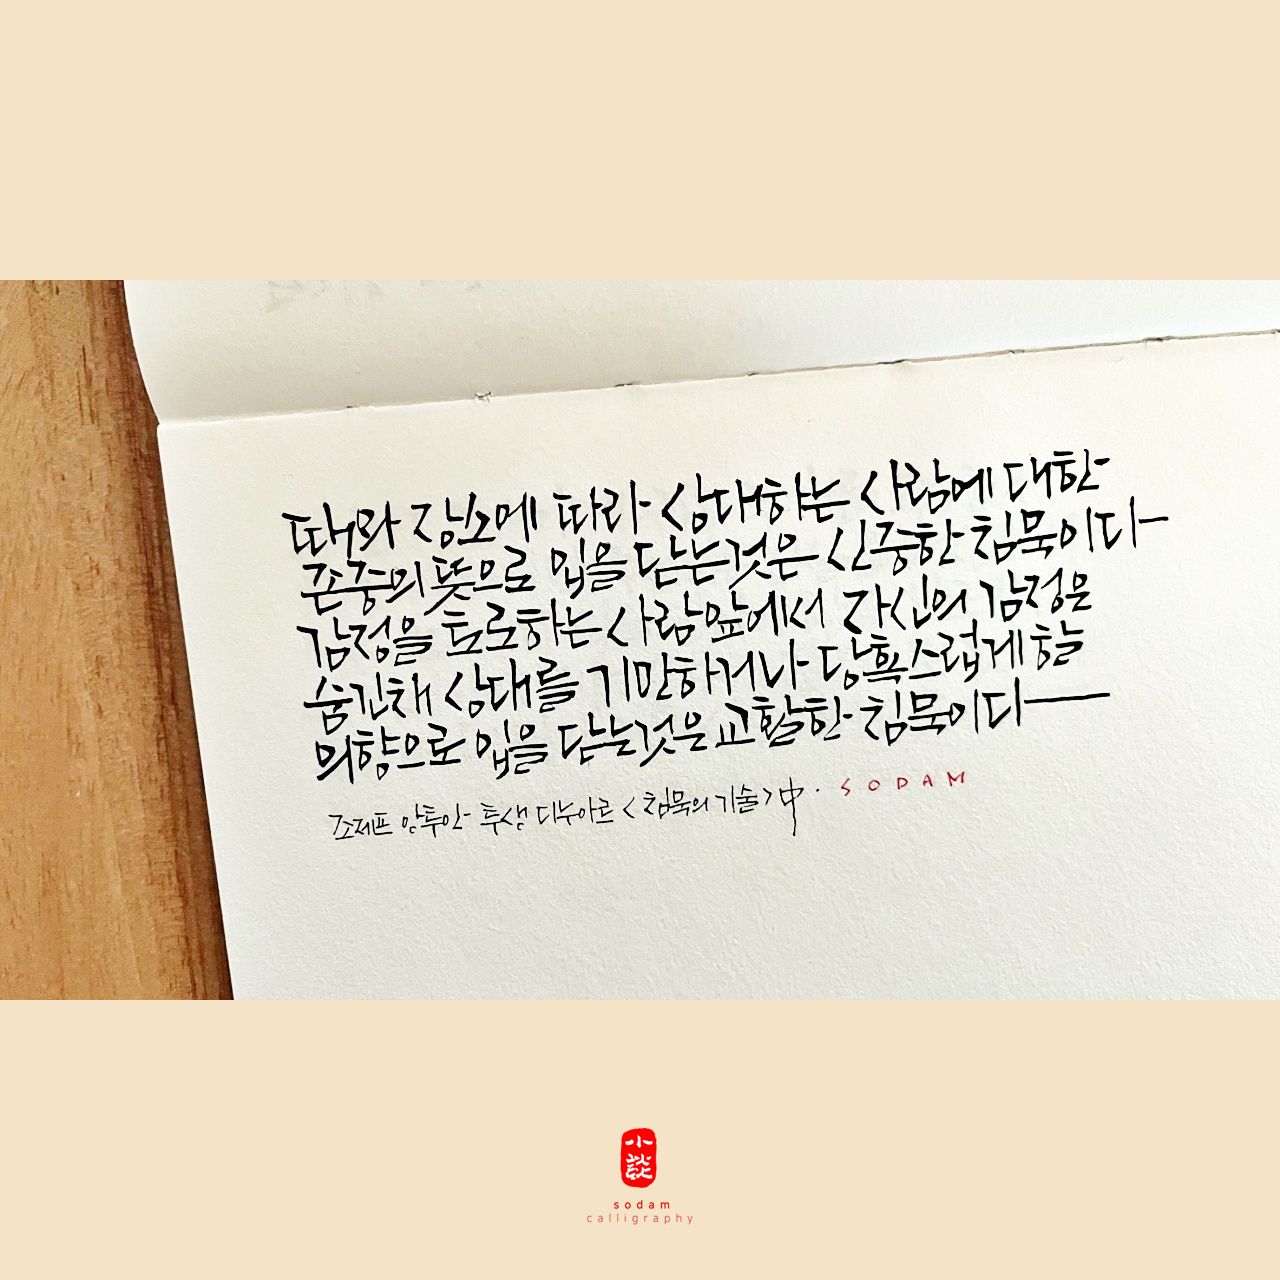 때와 장소에 따라 상대하는 사람에 대한
존중의 뜻으로 입을 닫는것은 신중한 침묵이다
감정을 토로하는 사람 앞에서 자신의 감정은
숨긴채 상대를 기만하거나 당혹스럽게 할
의향으로 입을 닫는것은 교활한 침묵이다
조제프 앙투안 투생 디누아르 <침묵의 기술> 中. SODAM
小談
sodam
calligraphy